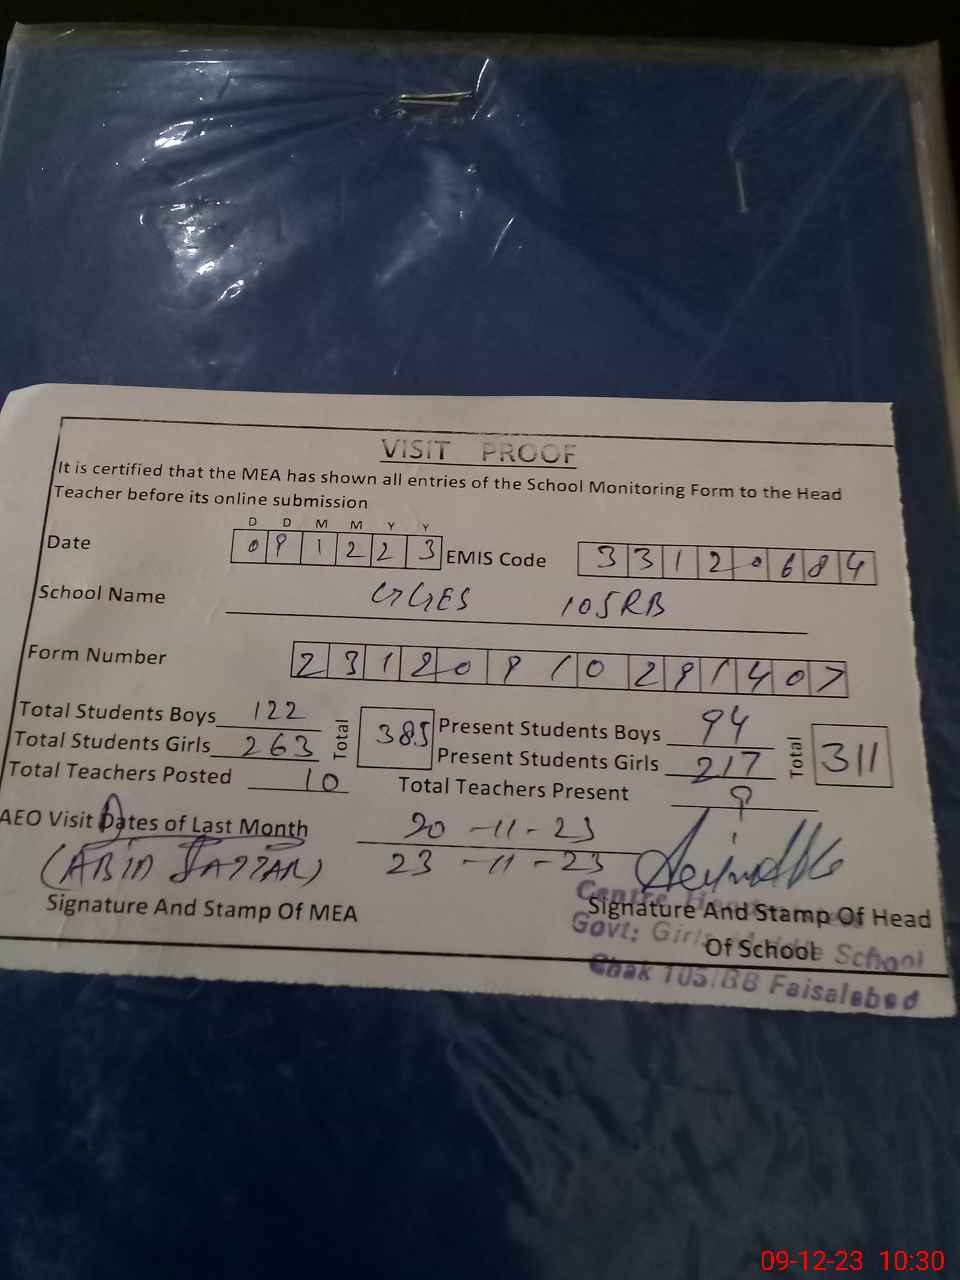 VISIT PROOF
It is certified that the MEA has shown all entries of the School Monitoring Form to the Head
Teacher before its online submission
D D M M Y Y
Date 0 9 1 2 2 3 EMIS Code 3 3 1 2 0 6 8 4
School Name GGES 105RB
Form Number 2 3 1 2 0 9 1 0 2 9 1 4 0 7
Total Students Boys 122 Total 385 Present Students Boys 94 Total 311
Total Students Girls 263 Present Students Girls 217
Total Teachers Posted 10 Total Teachers Present 9
AEO Visit Dates of Last Month 20-11-23
23-11-23
(ABID
Signature And Stamp Of MEA
Signature And Stamp Of Head
Of School
Centre
Govt: Girls School
Chak 105/RB Faisalabad
09-12-23 10:30